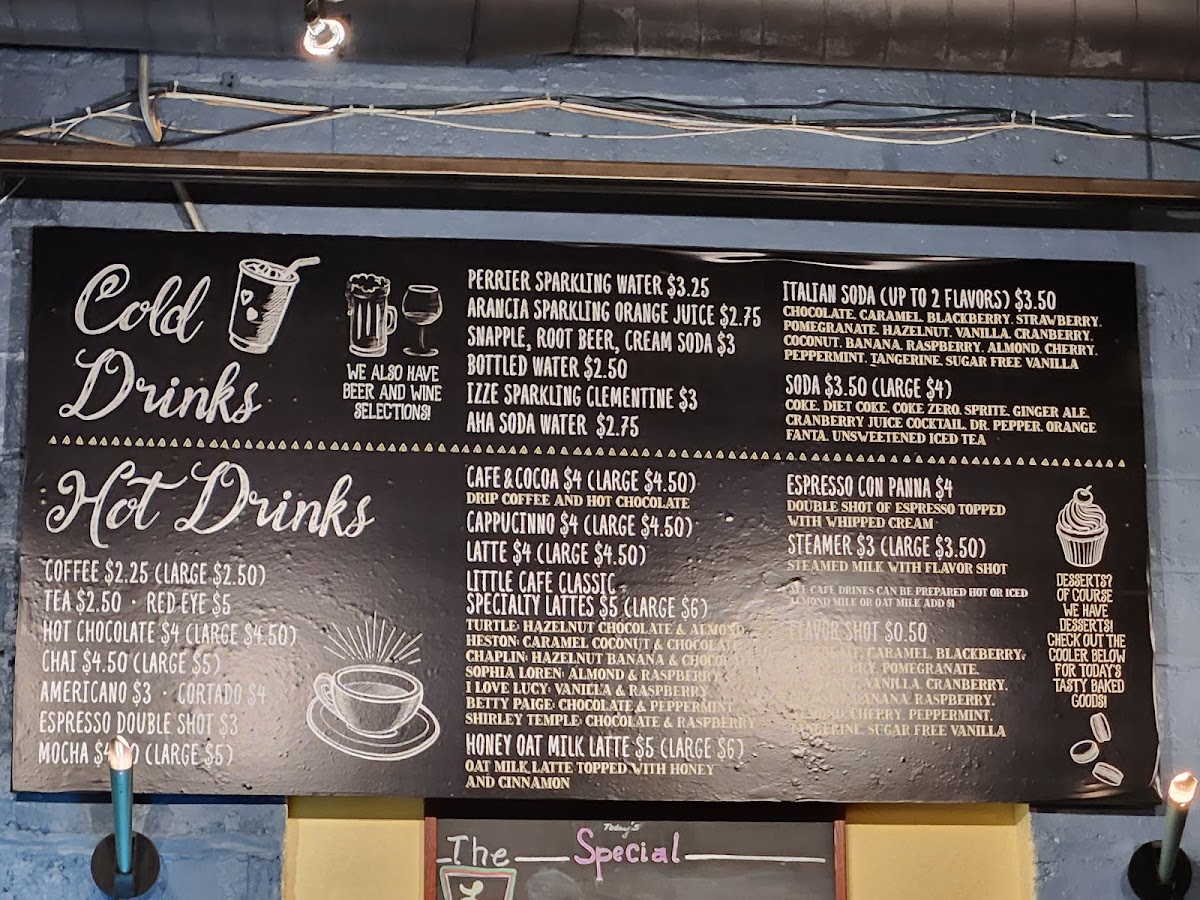 Cold
Drinks
WE ALSO HAVE
BEER AND WINE
SELECTIONS!
PERRIER SPARKLING WATER $3.25
ARANCIA SPARKLING ORANGE JUICE $2.75
SNAPPLE, ROOT BEER, CREAM SODA $3
BOTTLED WATER $2.50
IZZE SPARKLING CLEMENTINE $3
AHA SODA WATER $2.75
ITALIAN SODA (UP TO 2 FLAVORS) $3.50
CHOCOLATE, CARAMEL, BLACKBERRY, STRAWBERRY,
POMEGRANATE, HAZELNUT, VANILLA, CRANBERRY,
COCONUT, BANANA, RASPBERRY, ALMOND, CHERRY,
PEPPERMINT, TANGERINE, SUGAR FREE VANILLA
SODA $3.50 (LARGE $4)
COKE, DIET COKE, COKE ZERO, SPRITE, GINGER ALE,
CRANBERRY JUICE COCKTAIL, DR. PEPPER, ORANGE
FANTA, UNSWEETENED ICED TEA
Hot Drinks
COFFEE $2.25 (LARGE $2.50)
TEA $2.50 · RED EYE $5
HOT CHOCOLATE $4 (LARGE $4.50)
CHAI $4.50 (LARGE $5)
AMERICANO $3 · CORTADO $4
ESPRESSO DOUBLE SHOT $3
MOCHA (LARGE $5)
CAFE & COCOA $4 (LARGE $4.50)
DRIP COFFEE AND HOT CHOCOLATE
CAPPUCINNO $4 (LARGE $4.50)
LATTE $4 (LARGE $4.50)
LITTLE CAFE CLASSIC
SPECIALTY LATTES $5 (LARGE $6)
TURTLE: HAZELNUT CHOCOLATE & ALMOND
HESTON: CARAMEL COCONUT & CHOCOLATE
CHAPLIN: HAZELNUT BANANA &
SOPHIA LOREN: ALMOND & RASPBERRY
I LOVE LUCY: VANILLA & RASPBERRY
BETTY PAIGE: CHOCOLATE & PEPPERMINT
SHIRLEY TEMPLE: CHOCOLATE & RASPBERRY
HONEY OAT MILK LATTE $5 (LARGE $6)
OAT MILK LATTE TOPPED WITH HONEY
AND CINNAMON
ESPRESSO CON PANNA $4
DOUBLE SHOT OF ESPRESSO TOPPED
WITH WHIPPED CREAM
STEAMER $3 (LARGE $3.50)
STEAMED MILK WITH FLAVOR SHOT
ALL CAFE DRINKS CAN BE PREPARED HOT OR ICED
ALMOND MILK OR OAT MILK ADD $1
FLAVOR SHOT $0.50
CARAMEL, BLACKBERRY,
POMEGRANATE,
VANILLA, CRANBERRY,
BANANA, RASPBERRY,
CHERRY, PEPPERMINT,
TANGERINE, SUGAR FREE VANILLA
DESSERTS?
OF COURSE
WE HAVE
DESSERTS!
CHECK OUT THE
COOLER BELOW
FOR TODAY'S
TASTY BAKED
GOODS!
Today's
The Special